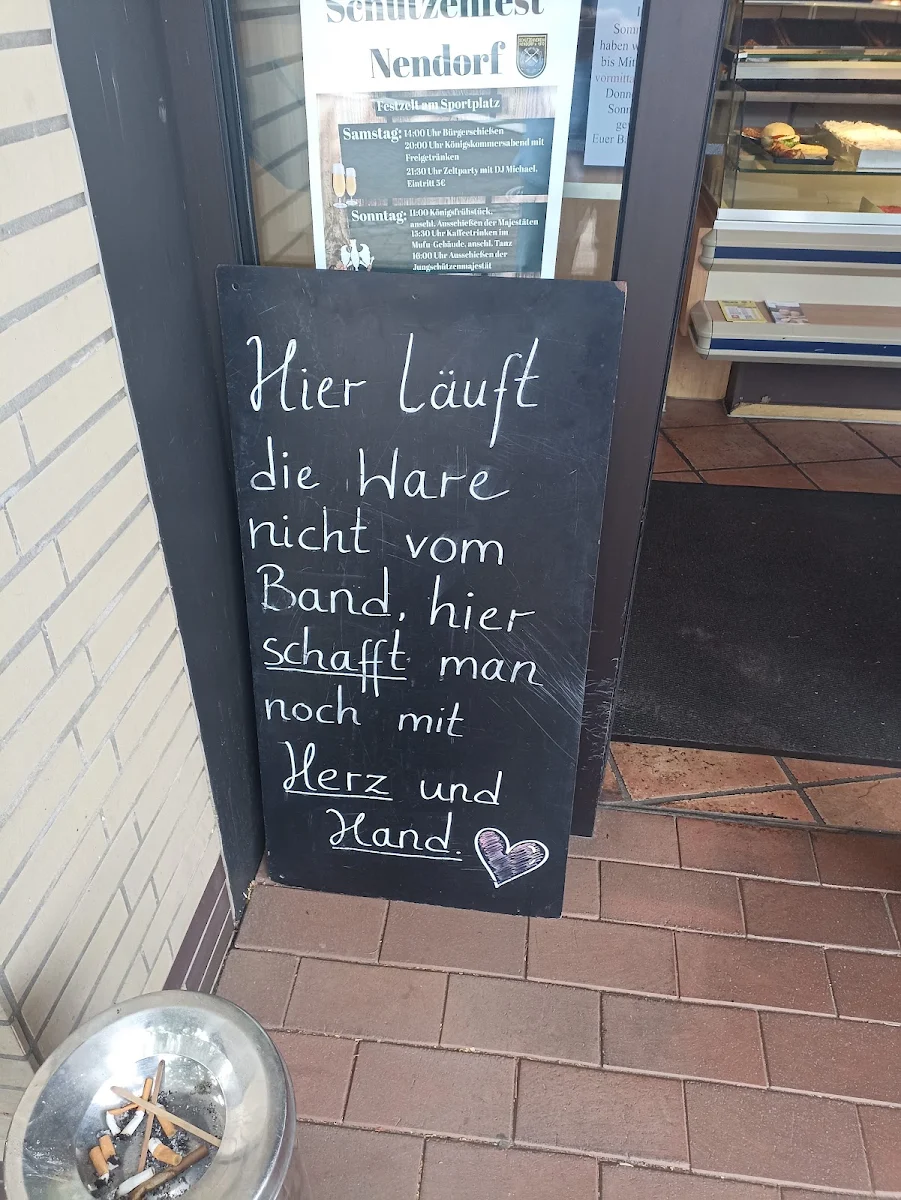 Schützenfest
Nendorf
Festzelt am Sportplatz
Samstag: 14:00 Uhr Bürgerschießen
20:00 Uhr Königskommersabend mit
Freigetränken
21:30 Uhr Zeltparty mit DJ Michael,
Eintritt 5€
Sonntag: 11:00 Königsfrühstück,
anschl. Ausschießen der Majestäten
15:30 Uhr Kaffeetrinken im
Mufu-Gebäude, anschl. Tanz
16:00 Uhr Ausschießen der
Jungschützenmajestät
haben
bis
Euer
Hier Läuft
die Ware
nicht vom
Band, hier
schafft man
noch mit
Herz und
Hand.